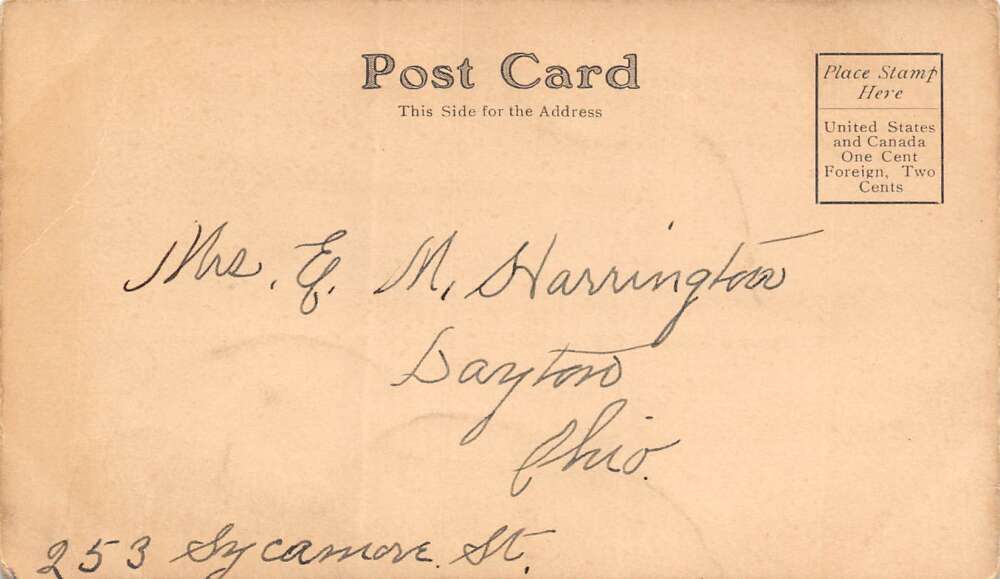 Post Card
This Side for the Address
Place Stamp
Here
United States
and Canada
One Cent
Foreign, Two
Cents
Mrs. E. M. Harrington
Dayton
Ohio.
253 Sycamore St.